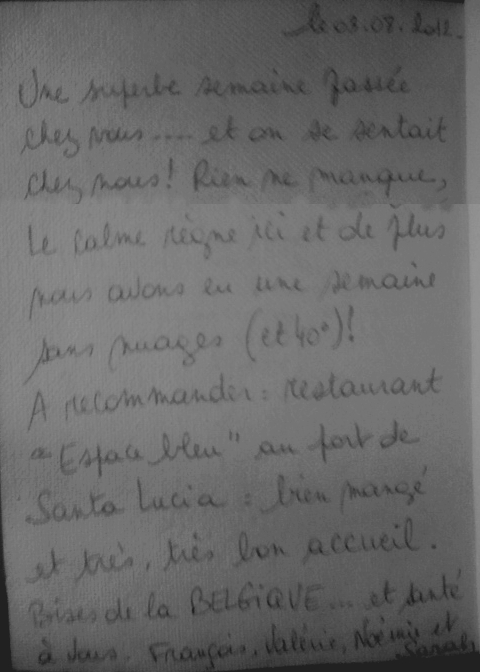 le 03.08.2012.
Une superbe semaine passée
chez vous.... et on se sentait
chez nous! Rien ne manque,
le calme règne ici et de plus
nous avons eu une semaine
sans nuages (et 40°)!
A recommander: restaurant
"Espace bleu" au port de
Santa Lucia: bien mangé
et très, très bon accueil.
Bises de la BELGiQUE... et santé
à vous. François, Valérie, Noémie et
Sarah